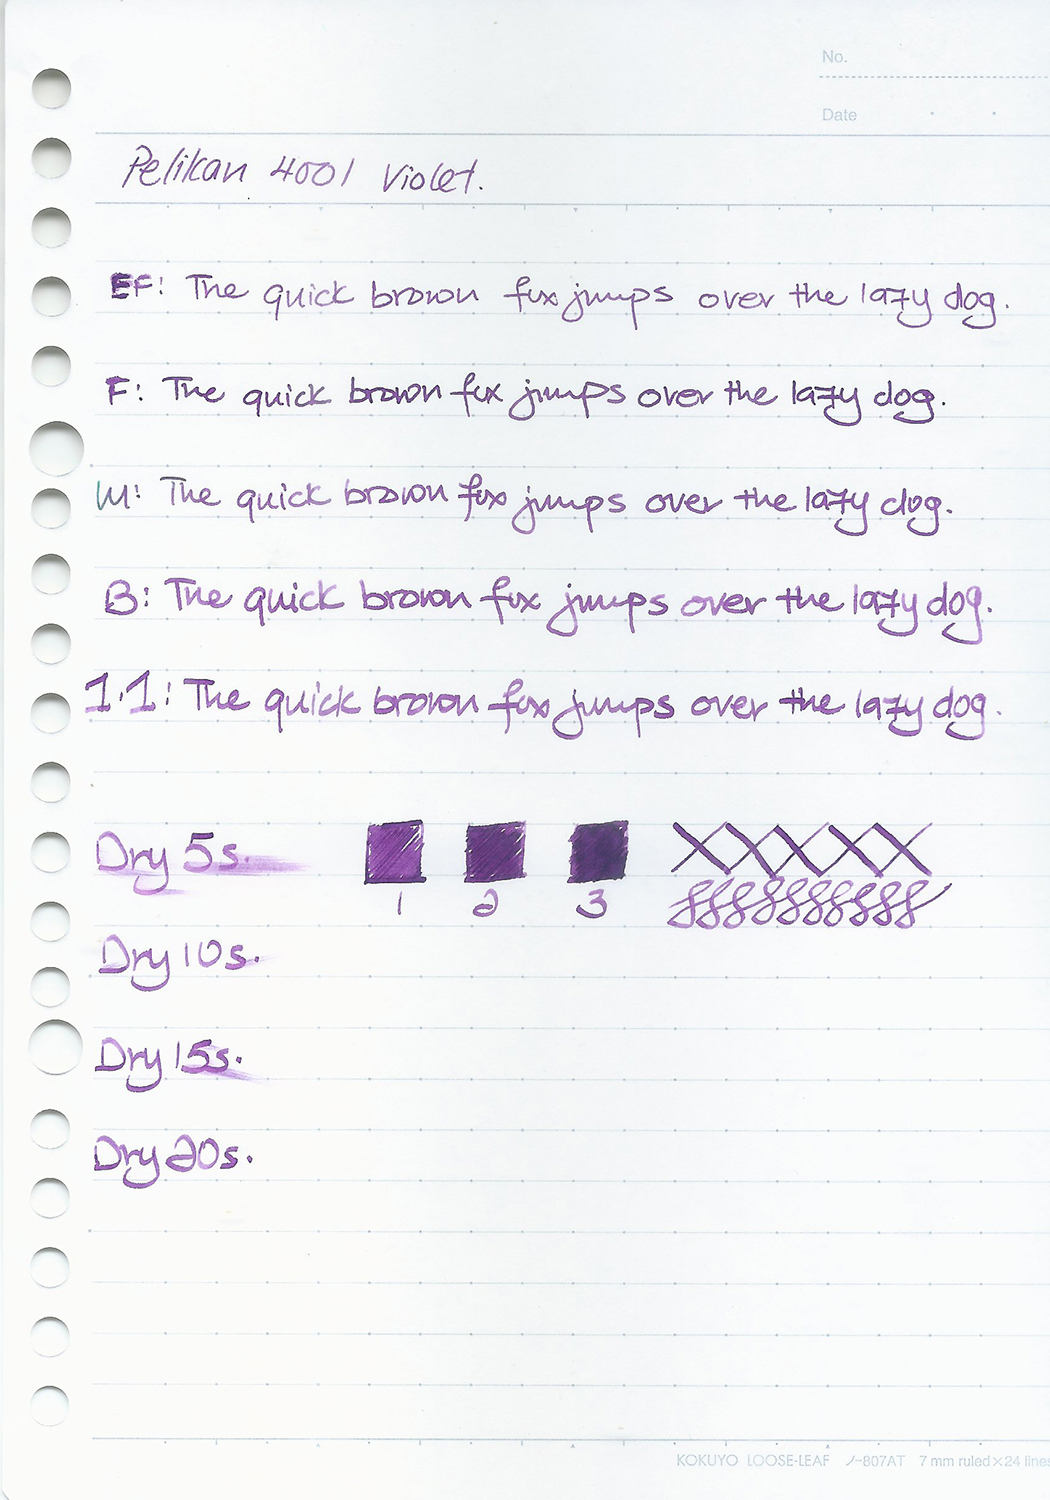 No.
Date
Pelikan 4001 Violet.
EF: The quick brown fox jumps over the lazy dog.
F: The quick brown fox jumps over the lazy dog.
M: The quick brown fox jumps over the lazy dog.
B: The quick brown fox jumps over the lazy dog.
1.1: The quick brown fox jumps over the lazy dog.
Dry 5s.
1 2 3
Dry 10s.
Dry 15s.
Dry 20s.
KOKUYO LOOSE-LEAF ノ-807AT 7 mm ruled×24 lines